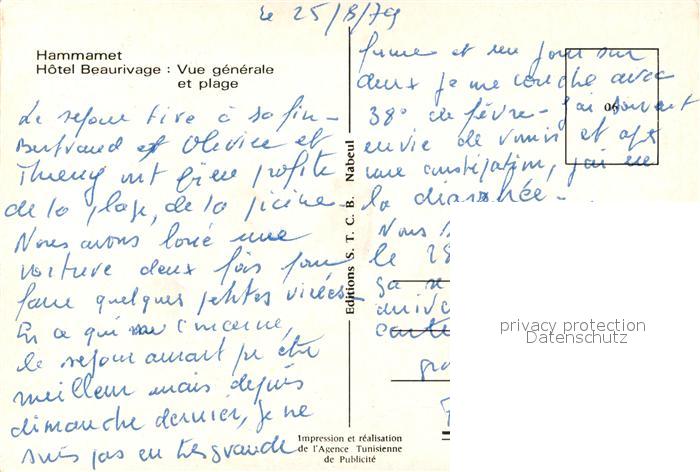 le 25/8/79
Hammamet
Hôtel Beaurivage : Vue générale
et plage
Le séjour tire à sa fin -
Bertrand et Olivier et
Thierry ont bien profité
de la plage, de la piscine -
Nous avons loué une
voiture deux fois pour
faire quelques petites virées -
En ce qui me concerne,
le séjour aurait pu être
meilleur mais depuis
dimanche dernier, je ne
suis pas en très grande
Editions S. T. C. B. Nabeul
Impression et réalisation
de l'Agence Tunisienne
de Publicité
forme et un jour sur
deux je me couche avec
38° de fièvre - j'ai souvent
06
envie de vomir et après
une constipation, j'ai eu
la diarrhée -
Nous
le 28
ça se
carte
privacy protection
Datenschutz